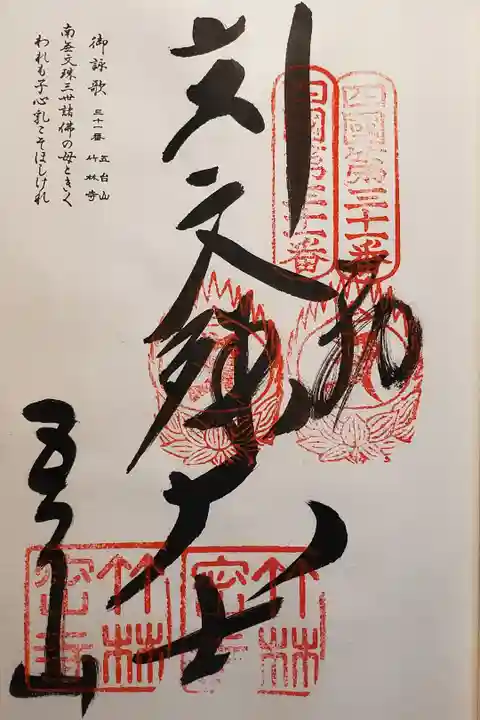 四國第三十一番
四國第三十一番
文殊大士
五台山
竹林密寺
竹林密寺
御詠歌 三十一番 五台山 竹林寺
南無文殊三世諸佛の母ときく
われも子心乳こそほしけれ